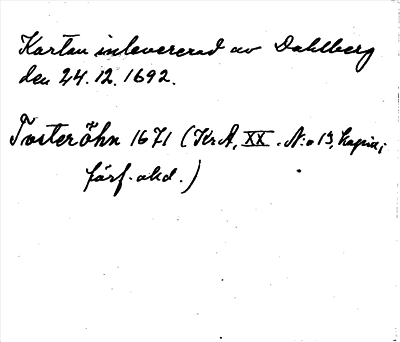 Kartan inlevererad av Dahlberg
den 24.12.1692.
Tosteröhn 1671 (Kr A, XX. N:o 13, kopia;
förf. okd.)